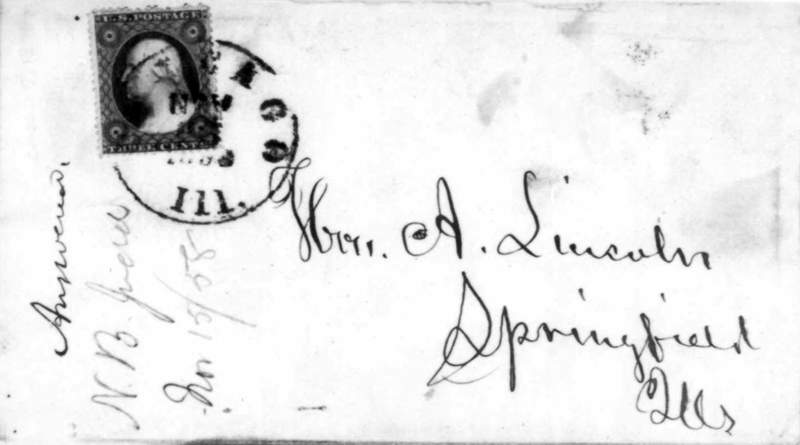 U.S. POSTAGE
THREE CENTS
AGO
NOV
Ill.
Hon. A. Lincoln
Springfield
Ills
Answered.
N. B. Judd
Nov 15/58